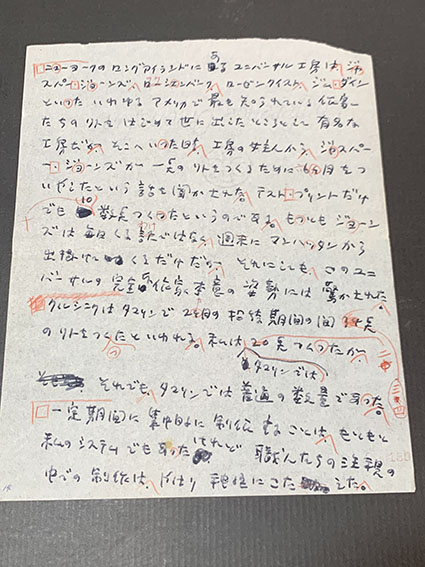 ニューヨークのロングアイランドにあるユニバーサル工房は、ジャ
スパー・ジョーンズ、ローシェンバーグ、ローゼンクイスト、ジム・ダイン
といった、いわゆるアメリカで最も知られている作家
たちのリトをはじめて世に出したところとして有名な
工房だが、そこへいった日、工房の主人から、ジャスパ
ー・ジョーンズが一点のリトをつくるために6ヵ月をつ
いやしたという話を聞かされた。テスト・プリントだけ
でも10数点つくったというのである。もっともジョーン
ズは毎日くる訳ではなく、週末にマンハッタンから
出掛けてくるだけだが、それにしても、このユニ
バーサルの完全な作家本意の姿勢には驚かされた。
クルシニクはタマリンで2ヵ月の招待期間の間
のリトをつくったといわれる。私は、20点つくったが、
タマリンでは、
それでも、タマリンでは普通の数量であった。
一定期間に集中的に制作することは、もともと
私のシステムでもあったけれど、職人たちの注視の
中での制作は、やはり神経にこたえた。